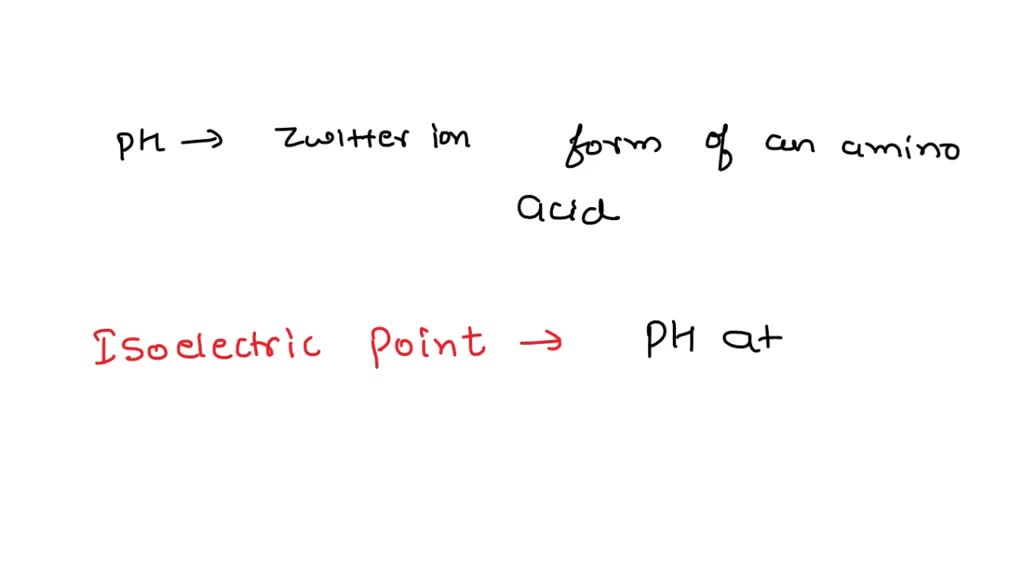 pH → Zwitter ion form of an amino
acid
Isoelectric point → PH at